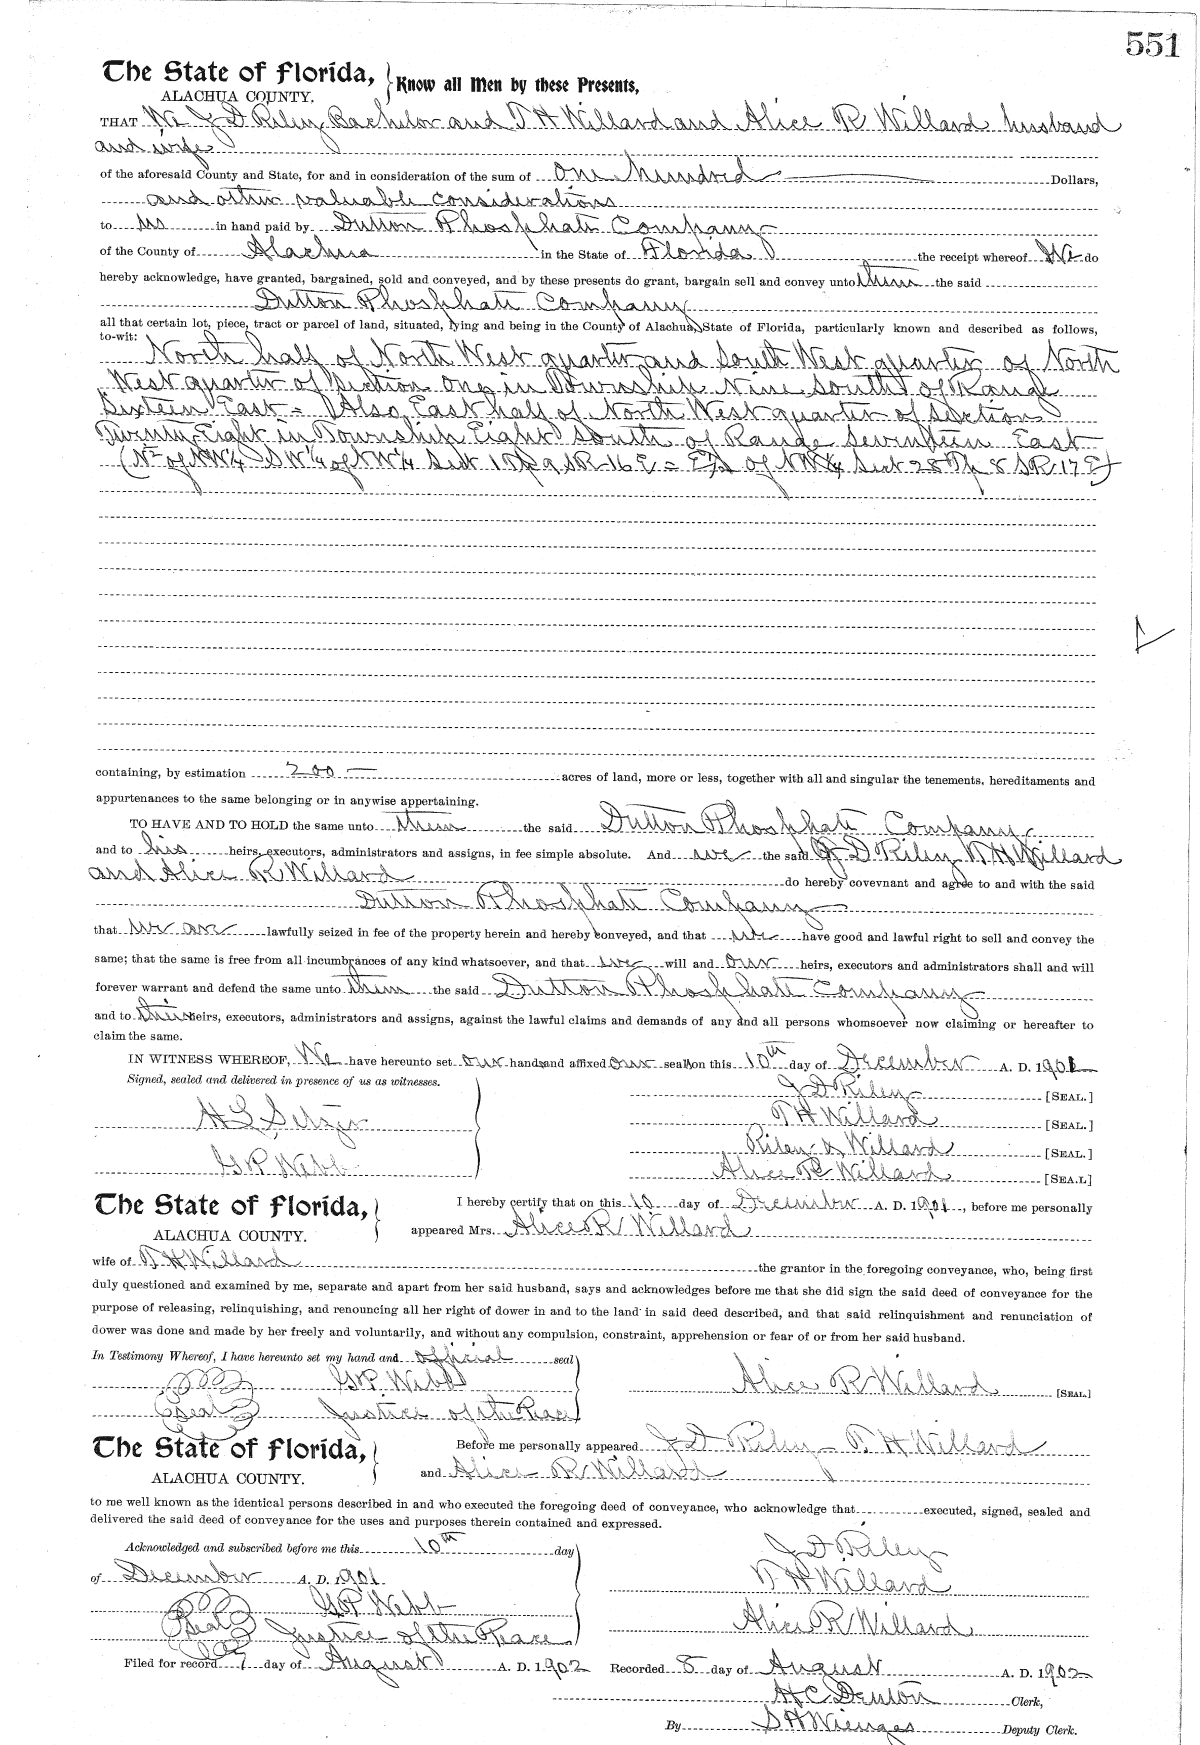 551
The State of Florida, Know all Men by these Presents,
ALACHUA COUNTY.
THAT We J D Riley, Bachelor and T H Willard and Alice R Willard husband
and wife
of the aforesaid County and State, for and in consideration of the sum of One Hundred Dollars,
and other valuable considerations
to us in hand paid by Dutton Phosphate Company
of the County of Alachua in the State of Florida the receipt whereof We do
hereby acknowledge, have granted, bargained, sold and conveyed, and by these presents do grant, bargain sell and convey unto them the said
Dutton Phosphate Company
all that certain lot, piece, tract or parcel of land, situated, lying and being in the County of Alachua, State of Florida, particularly known and described as follows,
to-wit:
North half of North West quarter and South West quarter of North
West quarter of Section One in Township Nine South of Range
Sixteen East = Also East half of North West quarter of Section
Twenty-Eight in Township Eight South of Range Seventeen East
(N2 of NW1/4 SW1/4 of NW1/4 Sect 1 Tp 9 S R 16 E = E1/2 of NW1/4 Sect 28 Tp 8 S R 17 E)
containing, by estimation 200 acres of land, more or less, together with all and singular the tenements, hereditaments and
appurtenances to the same belonging or in anywise appertaining.
TO HAVE AND TO HOLD the same unto them the said Dutton Phosphate Company
and to his heirs, executors, administrators and assigns, in fee simple absolute. And we the said J D Riley T H Willard
and Alice R Willard do hereby covevnant and agree to and with the said
Dutton Phosphate Company
that we are lawfully seized in fee of the property herein and hereby conveyed, and that we have good and lawful right to sell and convey the
same; that the same is free from all incumbrances of any kind whatsoever, and that we will and our heirs, executors and administrators shall and will
forever warrant and defend the same unto them the said Dutton Phosphate Company
and to their heirs, executors, administrators and assigns, against the lawful claims and demands of any and all persons whomsoever now claiming or hereafter to
claim the same.
IN WITNESS WHEREOF, We have hereunto set our hands and affixed our seals on this 10th day of December A. D. 1901
Signed, sealed and delivered in presence of us as witnesses.
J D Riley [SEAL.]
T H Willard [SEAL.]
Riley & Willard [SEAL.]
Alice R Willard [SEA.L]
G P Webb
The State of Florida, I hereby certify that on this 10 day of December A. D. 1901, before me personally
ALACHUA COUNTY. appeared Mrs. Alice R Willard
wife of T H Willard the grantor in the foregoing conveyance, who, being first
duly questioned and examined by me, separate and apart from her said husband, says and acknowledges before me that she did sign the said deed of conveyance for the
purpose of releasing, relinquishing, and renouncing all her right of dower in and to the land in said deed described, and that said relinquishment and renunciation of
dower was done and made by her freely and voluntarily, and without any compulsion, constraint, apprehension or fear of or from her said husband.
In Testimony Whereof, I have hereunto set my hand and official seal
G P Webb Alice R Willard [SEAL]
Seal Justice of the Peace
The State of Florida, Before me personally appeared J D Riley - T H Willard
ALACHUA COUNTY. and Alice R Willard
to me well known as the identical persons described in and who executed the foregoing deed of conveyance, who acknowledge that executed, signed, sealed and
delivered the said deed of conveyance for the uses and purposes therein contained and expressed.
Acknowledged and subscribed before me this 10th day J D Riley
of December A. D. 1901 T H Willard
G P Webb
Seal Justice of the Peace Alice R Willard
Filed for record 7 day of August A. D. 1902 Recorded 8 day of August A. D. 1902
H C Denton Clerk,
By S H Wienges Deputy Clerk.